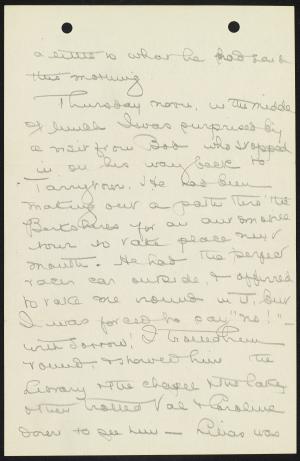 a little to what he had said
this morning
Thursday noon, in the midde
of lunch I was surprised by
a visit from Bob who stopped
in on his way back to
Tarrytown. He had been
making out a path thro' the
Berkshires for an automobile
tour to take place next
month. He had the perfect
racer car outside, & offered
to take me round in it, but
I was forced to say "no!" –
with sorrow! I trailed him
round, & showed him the
Library & the chapel & the lake,
& then trotted Val & Caroline
down to see him — was